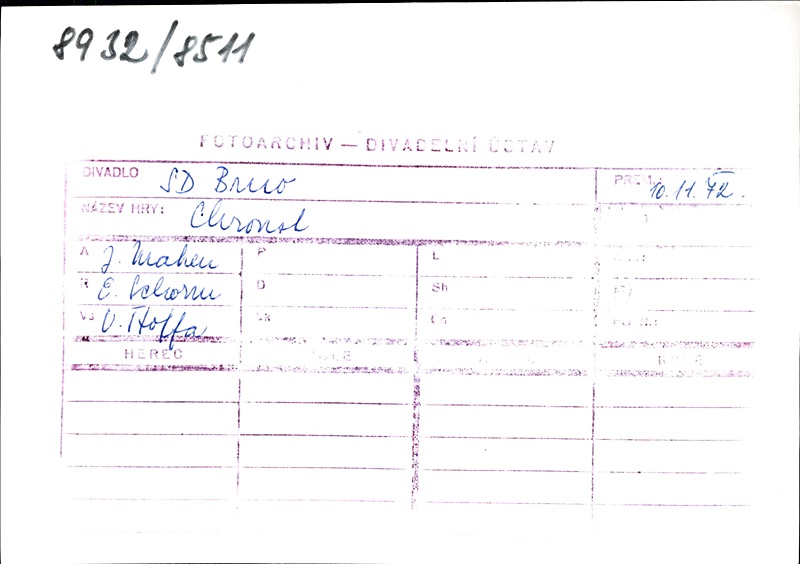 8932/8511
FOTOARCHIV — DIVADELNÍ ÚSTAV
DIVADLO SD Brno PREM. 10.11.72.
NÁZEV HRY: Chroust
A J. Mahen P L
R E. Schorm D Sh
VS V. Hoffa
HEREC ROLE ROLE